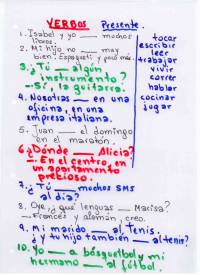 VERBOS Presente.
1. Isabel y yo ___ muchos
libros.
2. Mi hijo no ___ muy
bien! Espagueti y poco más.
3. ¿Tú ___ algún
instrumento?
- Sí, la guitarra.
4. Nosotras ___ en una
oficina, en una
empresa italiana.
5. Juan ___ el domingo
en el maratón.
6. ¿Dónde ___ Alicia?
- En el centro, en
un apartamento
precioso.
7. ¿Tú ___ muchos SMS
al día?
8. Oye, ¿qué lenguas ___ Marisa?
- Francés y alemán, creo.
9. Mi marido ___ al tenis.
¿Y tu hijo también ___ al tenis?
10. Yo ___ a básquetbol y mi
hermano ___ al fútbol.
tocar
escribir
leer
trabajar
vivir
correr
hablar
cocinar
jugar